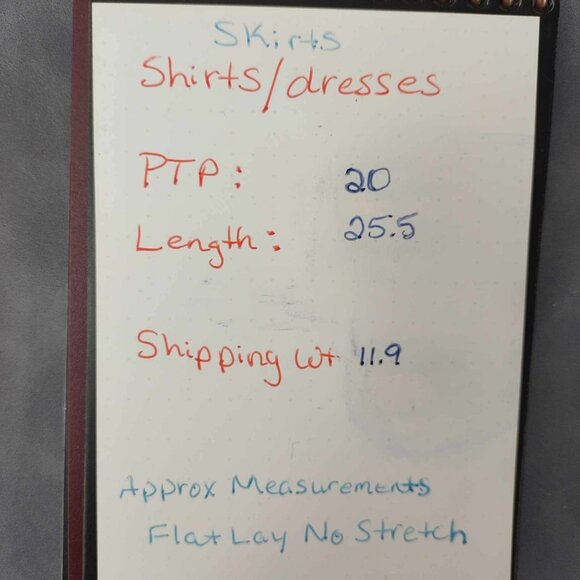 Skirts
Shirts/dresses
PTP: 20
Length: 25.5
Shipping Wt 11.9
Approx Measurements
Flat Lay No Stretch